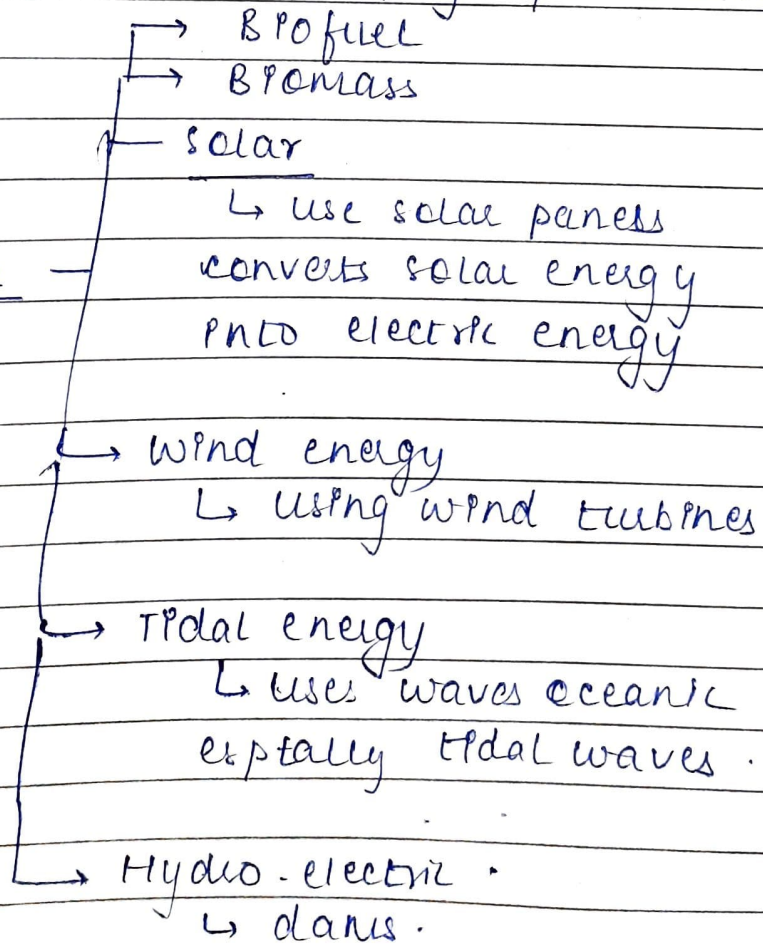 → Biofuel
→ Biomass
solar
↳ use solar paness
converts solar energy
into electric energy
→ wind energy
↳ using wind turbines
→ Tidal energy
↳ uses waves oceanic
esptally tidal waves.
→ Hydro-electric.
↳ dams.